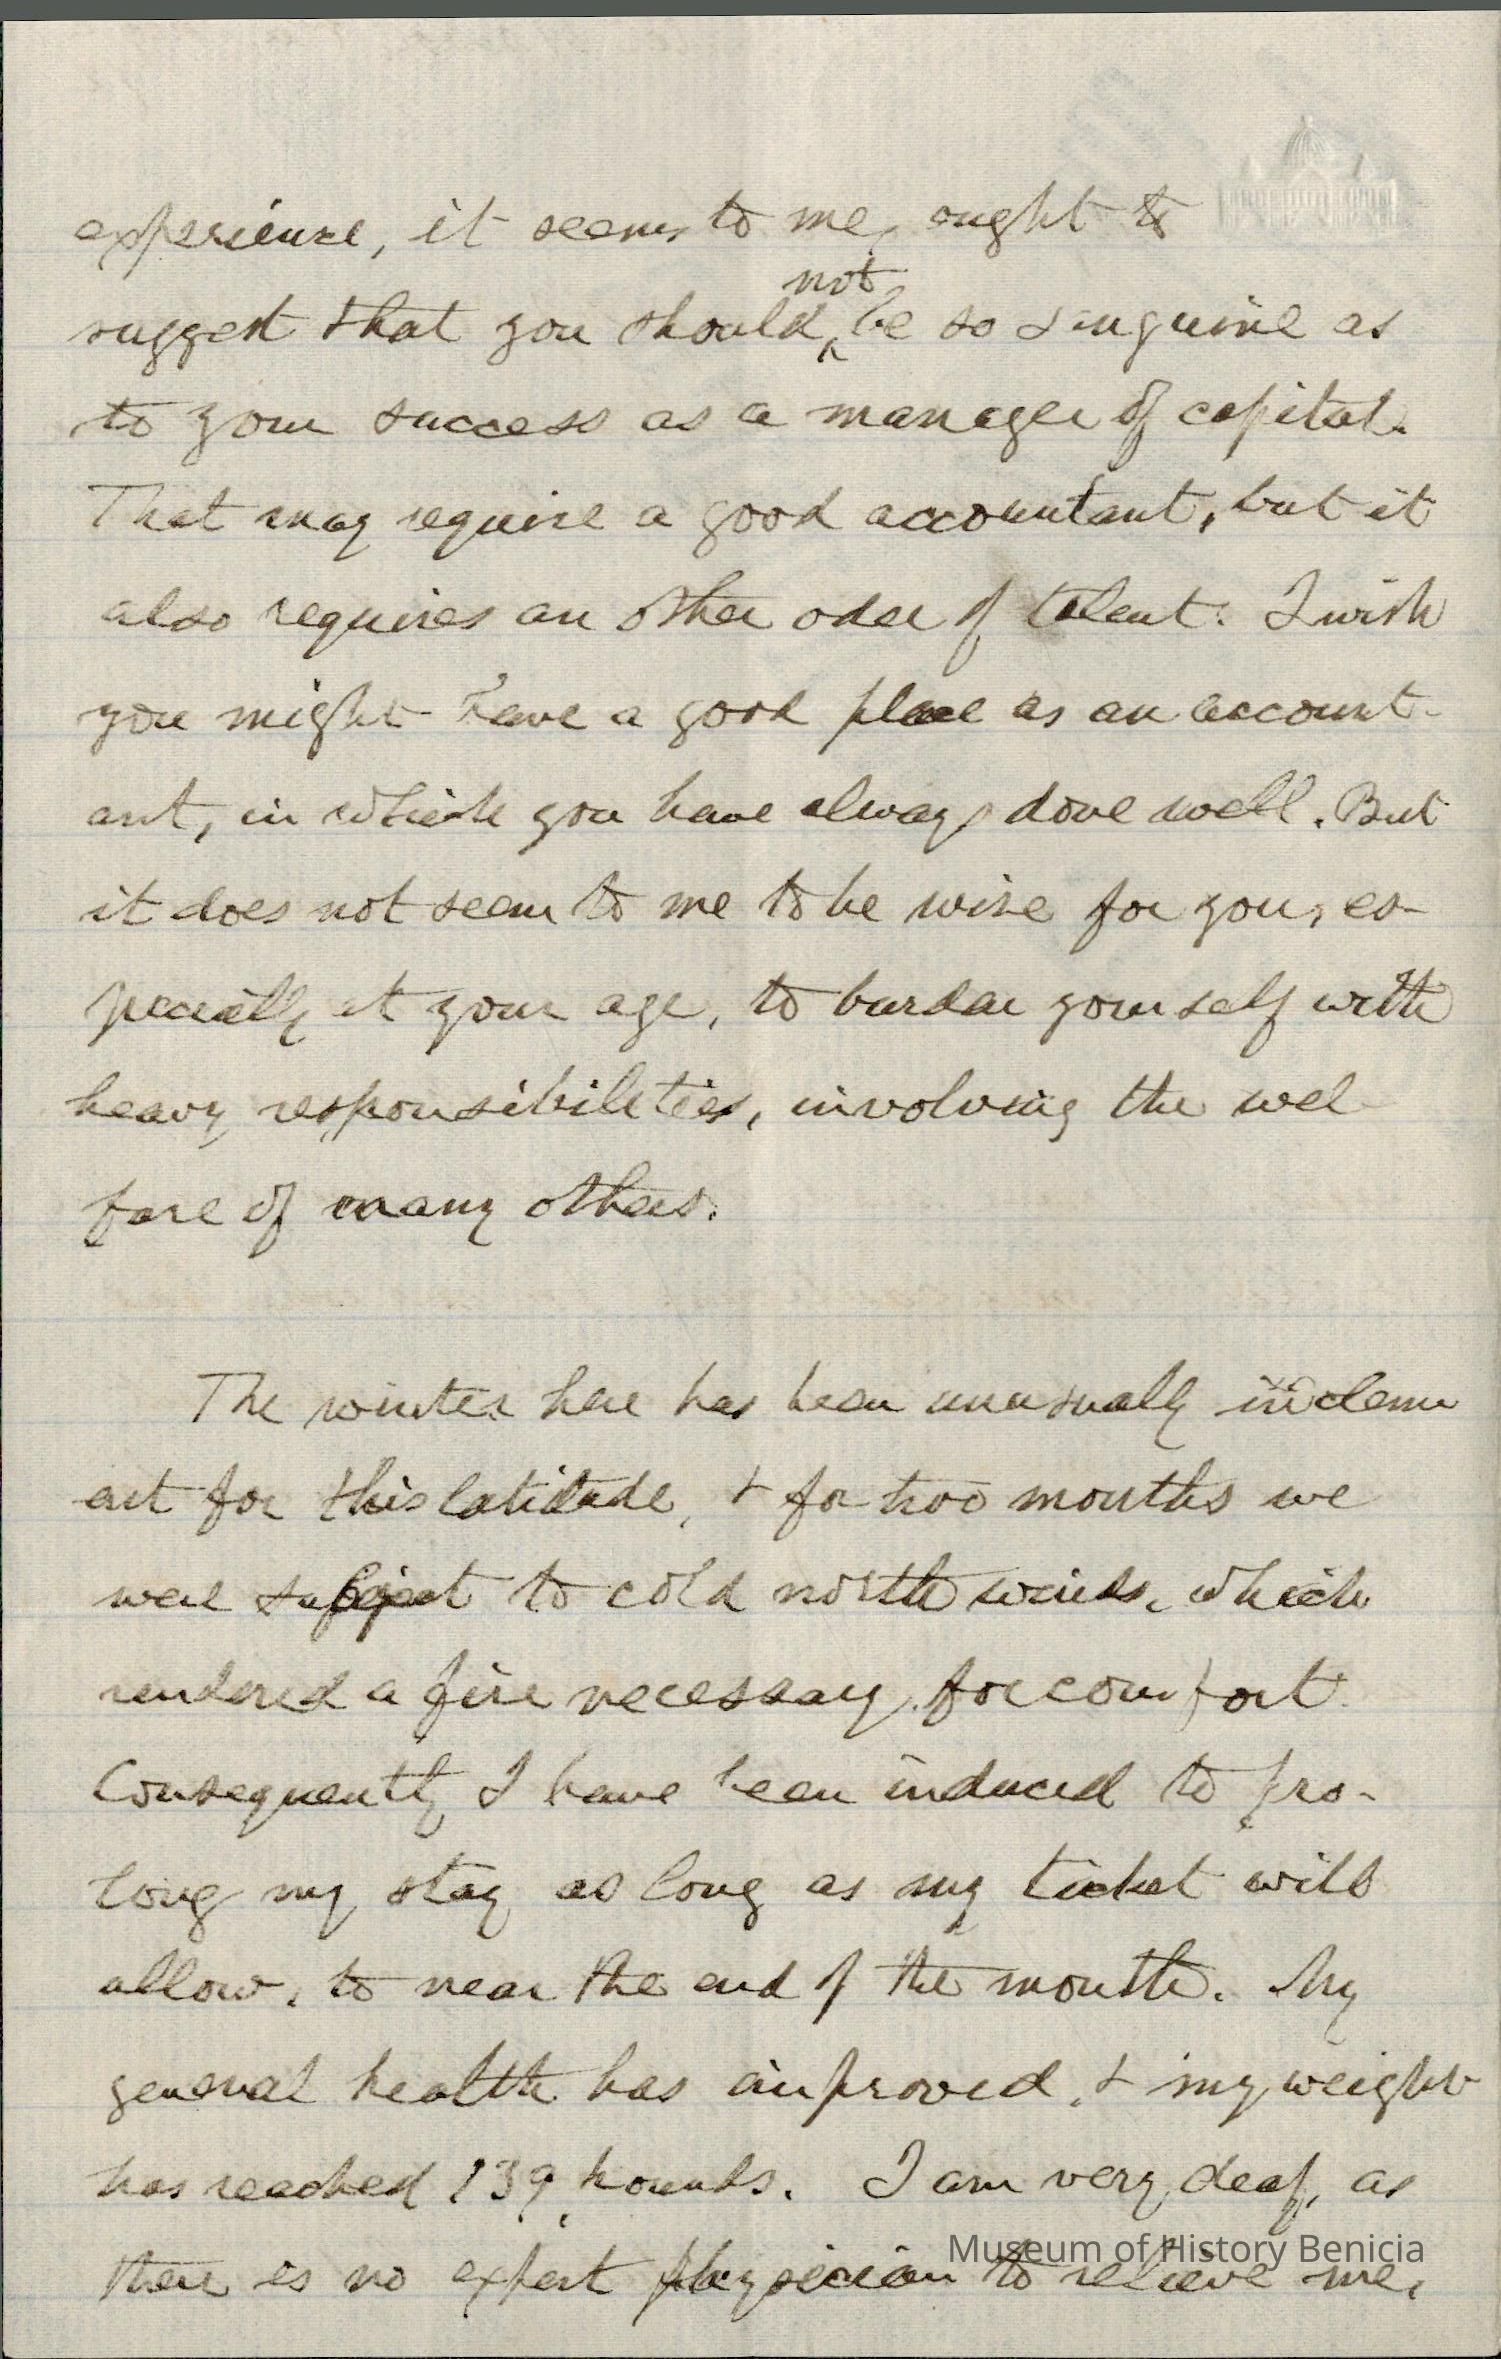 experience, it seems to me, ought to
not
suggest that you should ‸ be so sanguine as
to your success as a manager of capital.
That may require a good accountant, but it
also requires an other oder of talent. I wish
you might have a good place as an account-
ant, in which you have always done well. But
it does not seem to me to be wise for you, es-
pecially at your age, to burden yourself with
heavy responsibilities, involving the wel-
fare of many others.
The winter here has been unusually inclem
ent for this latitude, & for two months we
were subject to cold north winds, which
rendered a fire necessary for comfort.
Consequently I have been induced to pro-
long my stay as long as my ticket will
allow, to near the end of the month. My
general health has improved, & my weight
has reached 139 pounds. I am very deaf, as
there is no expert physician to relieve me,
Museum of History Benicia